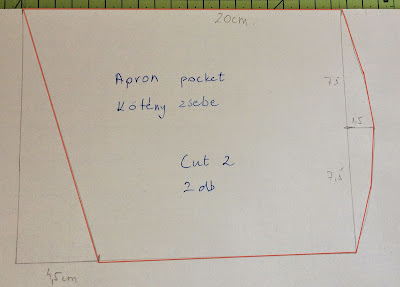 20cm
Apron pocket
Kötény zsebe
7,5
1,5
Cut 2
2 db
7,5
4,5cm